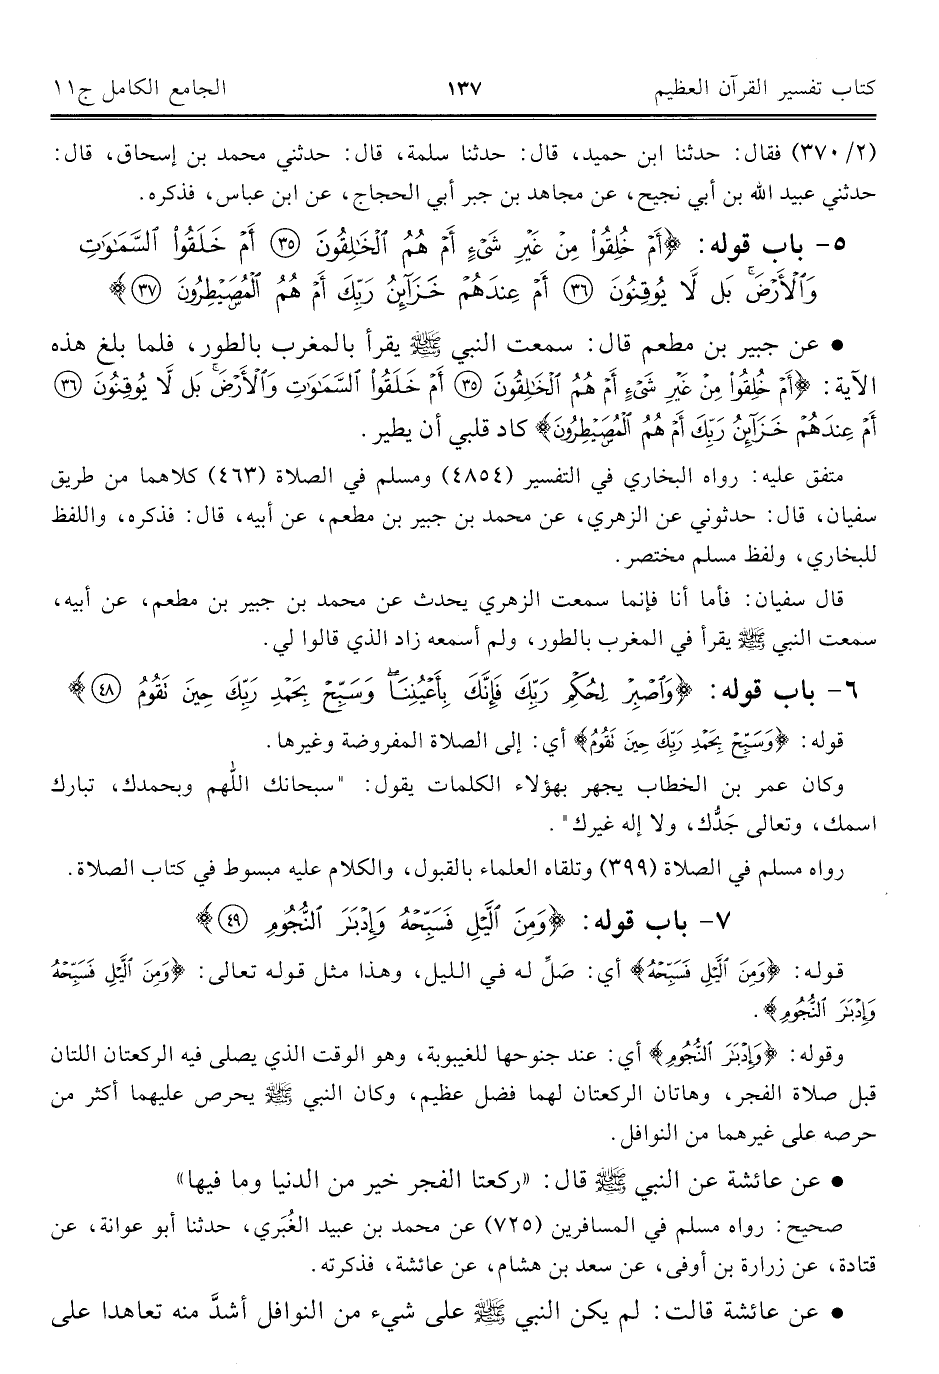 كتاب تفسير القرآن العظيم ١٣٧ الجامع الكامل ج١١
(٢/ ٣٧٠) فقال: حدثنا ابن حميد، قال: حدثنا سلمة، قال: حدثني محمد بن إسحاق، قال:
حدثني عبيد الله بن أبي نجيح، عن مجاهد بن جبر أبي الحجاج، عن ابن عباس، فذكره.
٥- باب قوله: ﴿أَمۡ خُلِقُواْ مِنۡ غَيۡرِ شَيۡءٍ أَمۡ هُمُ ٱلۡخَٰلِقُونَ ٣٥ أَمۡ خَلَقُواْ ٱلسَّمَٰوَٰتِ
وَٱلۡأَرۡضَۚ بَل لَّا يُوقِنُونَ ٣٦ أَمۡ عِندَهُمۡ خَزَآئِنُ رَبِّكَ أَمۡ هُمُ ٱلۡمُصَۜيۡطِرُونَ ٣٧﴾
• عن جبير بن مطعم قال: سمعت النبي ﷺ يقرأ بالمغرب بالطور، فلما بلغ هذه
الآية: ﴿أَمۡ خُلِقُواْ مِنۡ غَيۡرِ شَيۡءٍ أَمۡ هُمُ ٱلۡخَٰلِقُونَ ٣٥ أَمۡ خَلَقُواْ ٱلسَّمَٰوَٰتِ وَٱلۡأَرۡضَۚ بَل لَّا يُوقِنُونَ ٣٦
أَمۡ عِندَهُمۡ خَزَآئِنُ رَبِّكَ أَمۡ هُمُ ٱلۡمُصَۜيۡطِرُونَ﴾ كاد قلبي أن يطير.
متفق عليه: رواه البخاري في التفسير (٤٨٥٤) ومسلم في الصلاة (٤٦٣) كلاهما من طريق
سفيان، قال: حدثوني عن الزهري، عن محمد بن جبير بن مطعم، عن أبيه، قال: فذكره، واللفظ
للبخاري، ولفظ مسلم مختصر.
قال سفيان: فأما أنا فإنما سمعت الزهري يحدث عن محمد بن جبير بن مطعم، عن أبيه،
سمعت النبي ﷺ يقرأ في المغرب بالطور، ولم أسمعه زاد الذي قالوا لي.
٦- باب قوله: ﴿وَٱصۡبِرۡ لِحُكۡمِ رَبِّكَ فَإِنَّكَ بِأَعۡيُنِنَاۖ وَسَبِّحۡ بِحَمۡدِ رَبِّكَ حِينَ تَقُومُ ٤٨﴾
قوله: ﴿وَسَبِّحۡ بِحَمۡدِ رَبِّكَ حِينَ تَقُومُ﴾ أي: إلى الصلاة المفروضة وغيرها.
وكان عمر بن الخطاب يجهر بهؤلاء الكلمات يقول: "سبحانك اللّهم وبحمدك، تبارك
اسمك، وتعالى جَدُّك، ولا إله غيرك".
رواه مسلم في الصلاة (٣٩٩) وتلقاه العلماء بالقبول، والكلام عليه مبسوط في كتاب الصلاة.
٧- باب قوله: ﴿وَمِنَ ٱلَّيۡلِ فَسَبِّحۡهُ وَإِدۡبَٰرَ ٱلنُّجُومِ ٤٩﴾
قوله: ﴿وَمِنَ ٱلَّيۡلِ فَسَبِّحۡهُ﴾ أي: صَلِّ له في الليل، وهذا مثل قوله تعالى: ﴿وَمِنَ ٱلَّيۡلِ فَسَبِّحۡهُ
وَإِدۡبَٰرَ ٱلنُّجُومِ﴾.
وقوله: ﴿وَإِدۡبَٰرَ ٱلنُّجُومِ﴾ أي: عند جنوحها للغيبوبة، وهو الوقت الذي يصلى فيه الركعتان اللتان
قبل صلاة الفجر، وهاتان الركعتان لهما فضل عظيم، وكان النبي ﷺ يحرص عليهما أكثر من
حرصه على غيرهما من النوافل.
• عن عائشة عن النبي ﷺ قال: «ركعتا الفجر خير من الدنيا وما فيها»
صحيح: رواه مسلم في المسافرين (٧٢٥) عن محمد بن عبيد الغُبَري، حدثنا أبو عوانة، عن
قتادة، عن زرارة بن أوفى، عن سعد بن هشام، عن عائشة، فذكرته.
• عن عائشة قالت: لم يكن النبي ﷺ على شيء من النوافل أشدَّ منه تعاهدا على